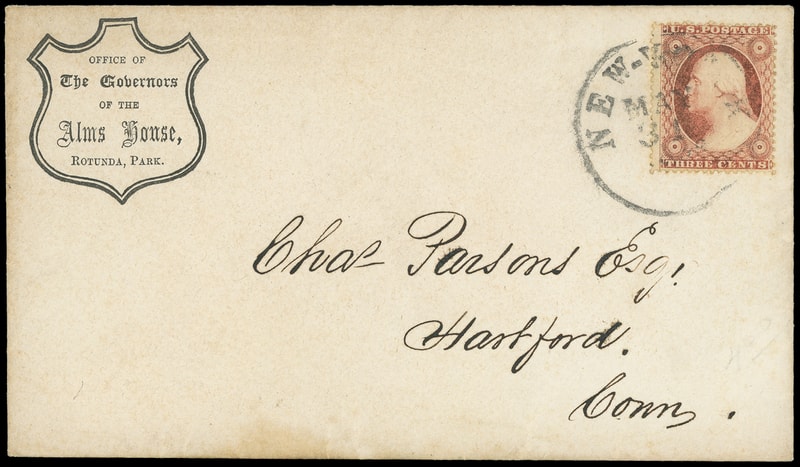 OFFICE OF
The Governors
OF THE
Alms House,
ROTUNDA, PARK.
U.S. POSTAGE
THREE CENTS
NEW-YO
MAY
Chas Parsons Esq!
Hartford.
Conn.